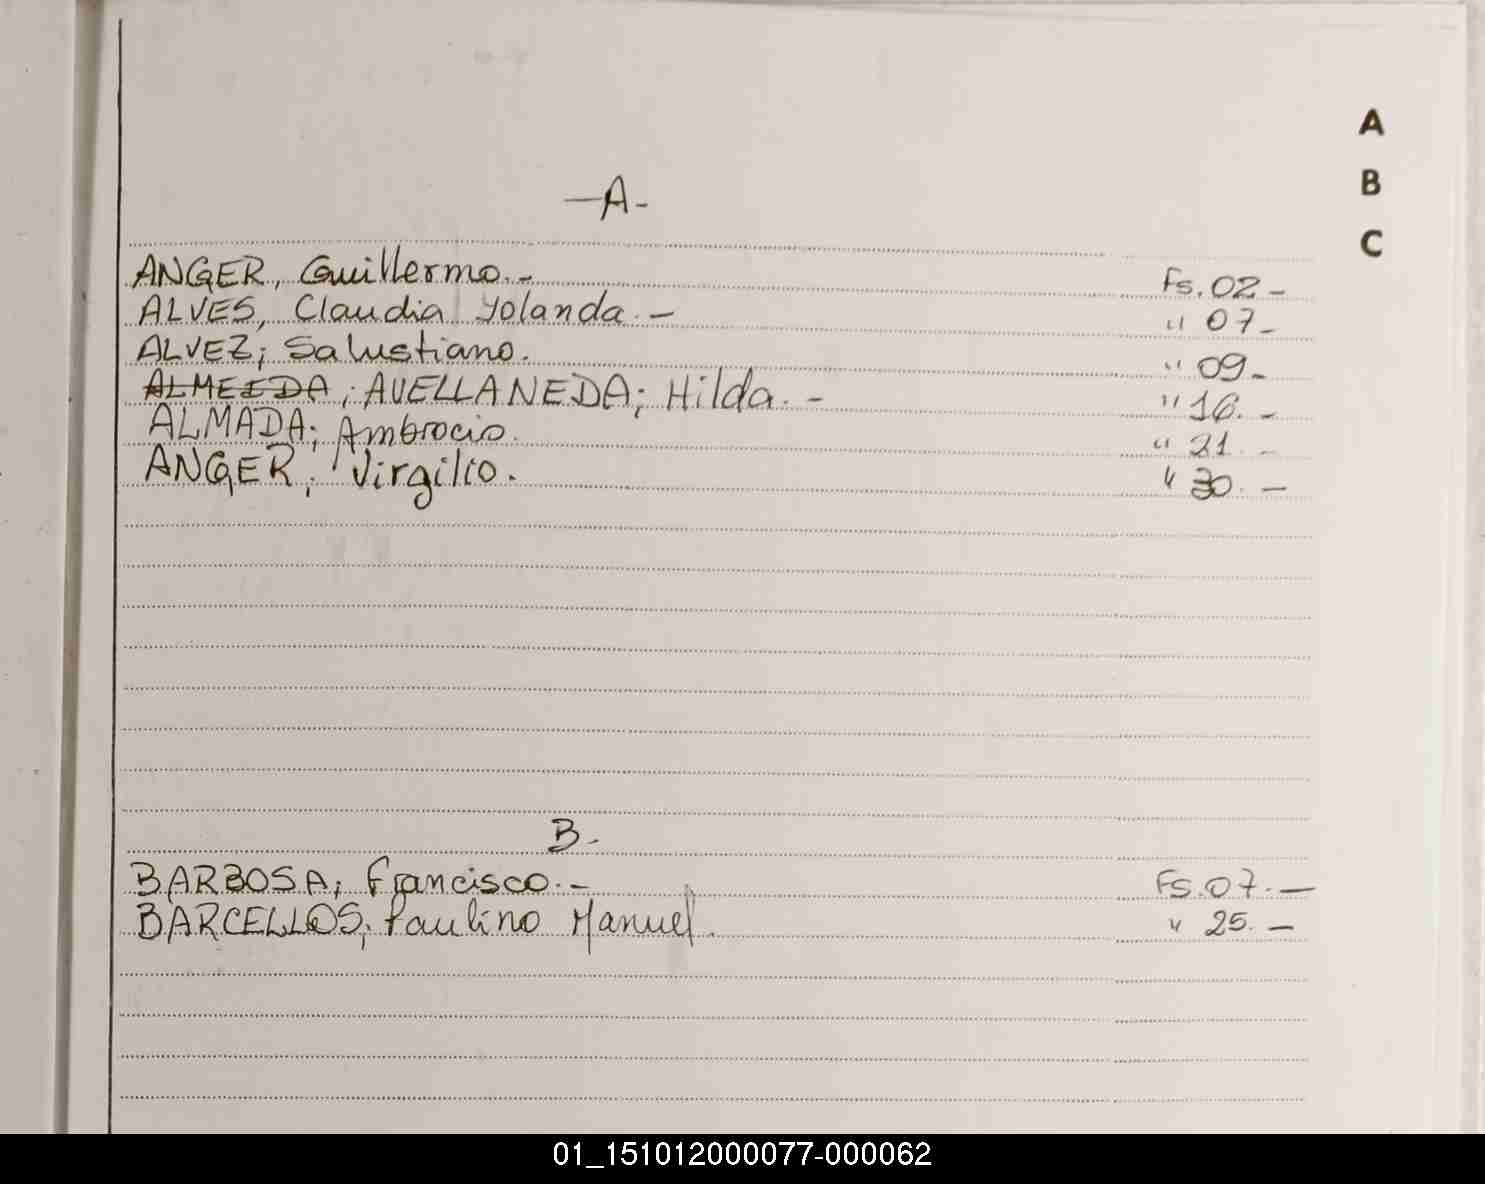 A
B
C
—A-
ANGER, Guillermo.- Fs. 02-
ALVES, Claudia Yolanda.- " 07-
ALVEZ; Salustiano. " 09-
ALMEIDA; AVELLANEDA; Hilda.- " 16.-
ALMADA; Ambrocio. " 21.-
ANGER; Virgilio. " 30.-
B-
BARBOSA; Francisco.- Fs. 07.-
BARCELLOS; Paulino Manuel. " 25.-
01_151012000077-000062